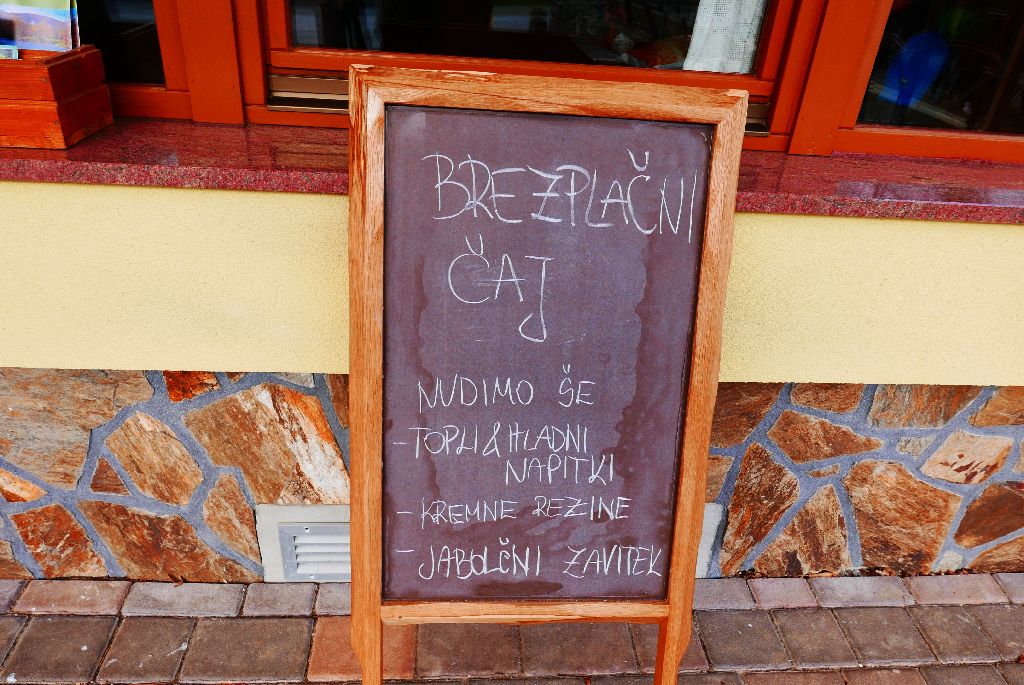 BREZPLAČNI
ČAJ
NUDIMO ŠE
- TOPLI & HLADNI
NAPITKI
- KREMNE REZINE
- JABOLČNI ZAVITEK